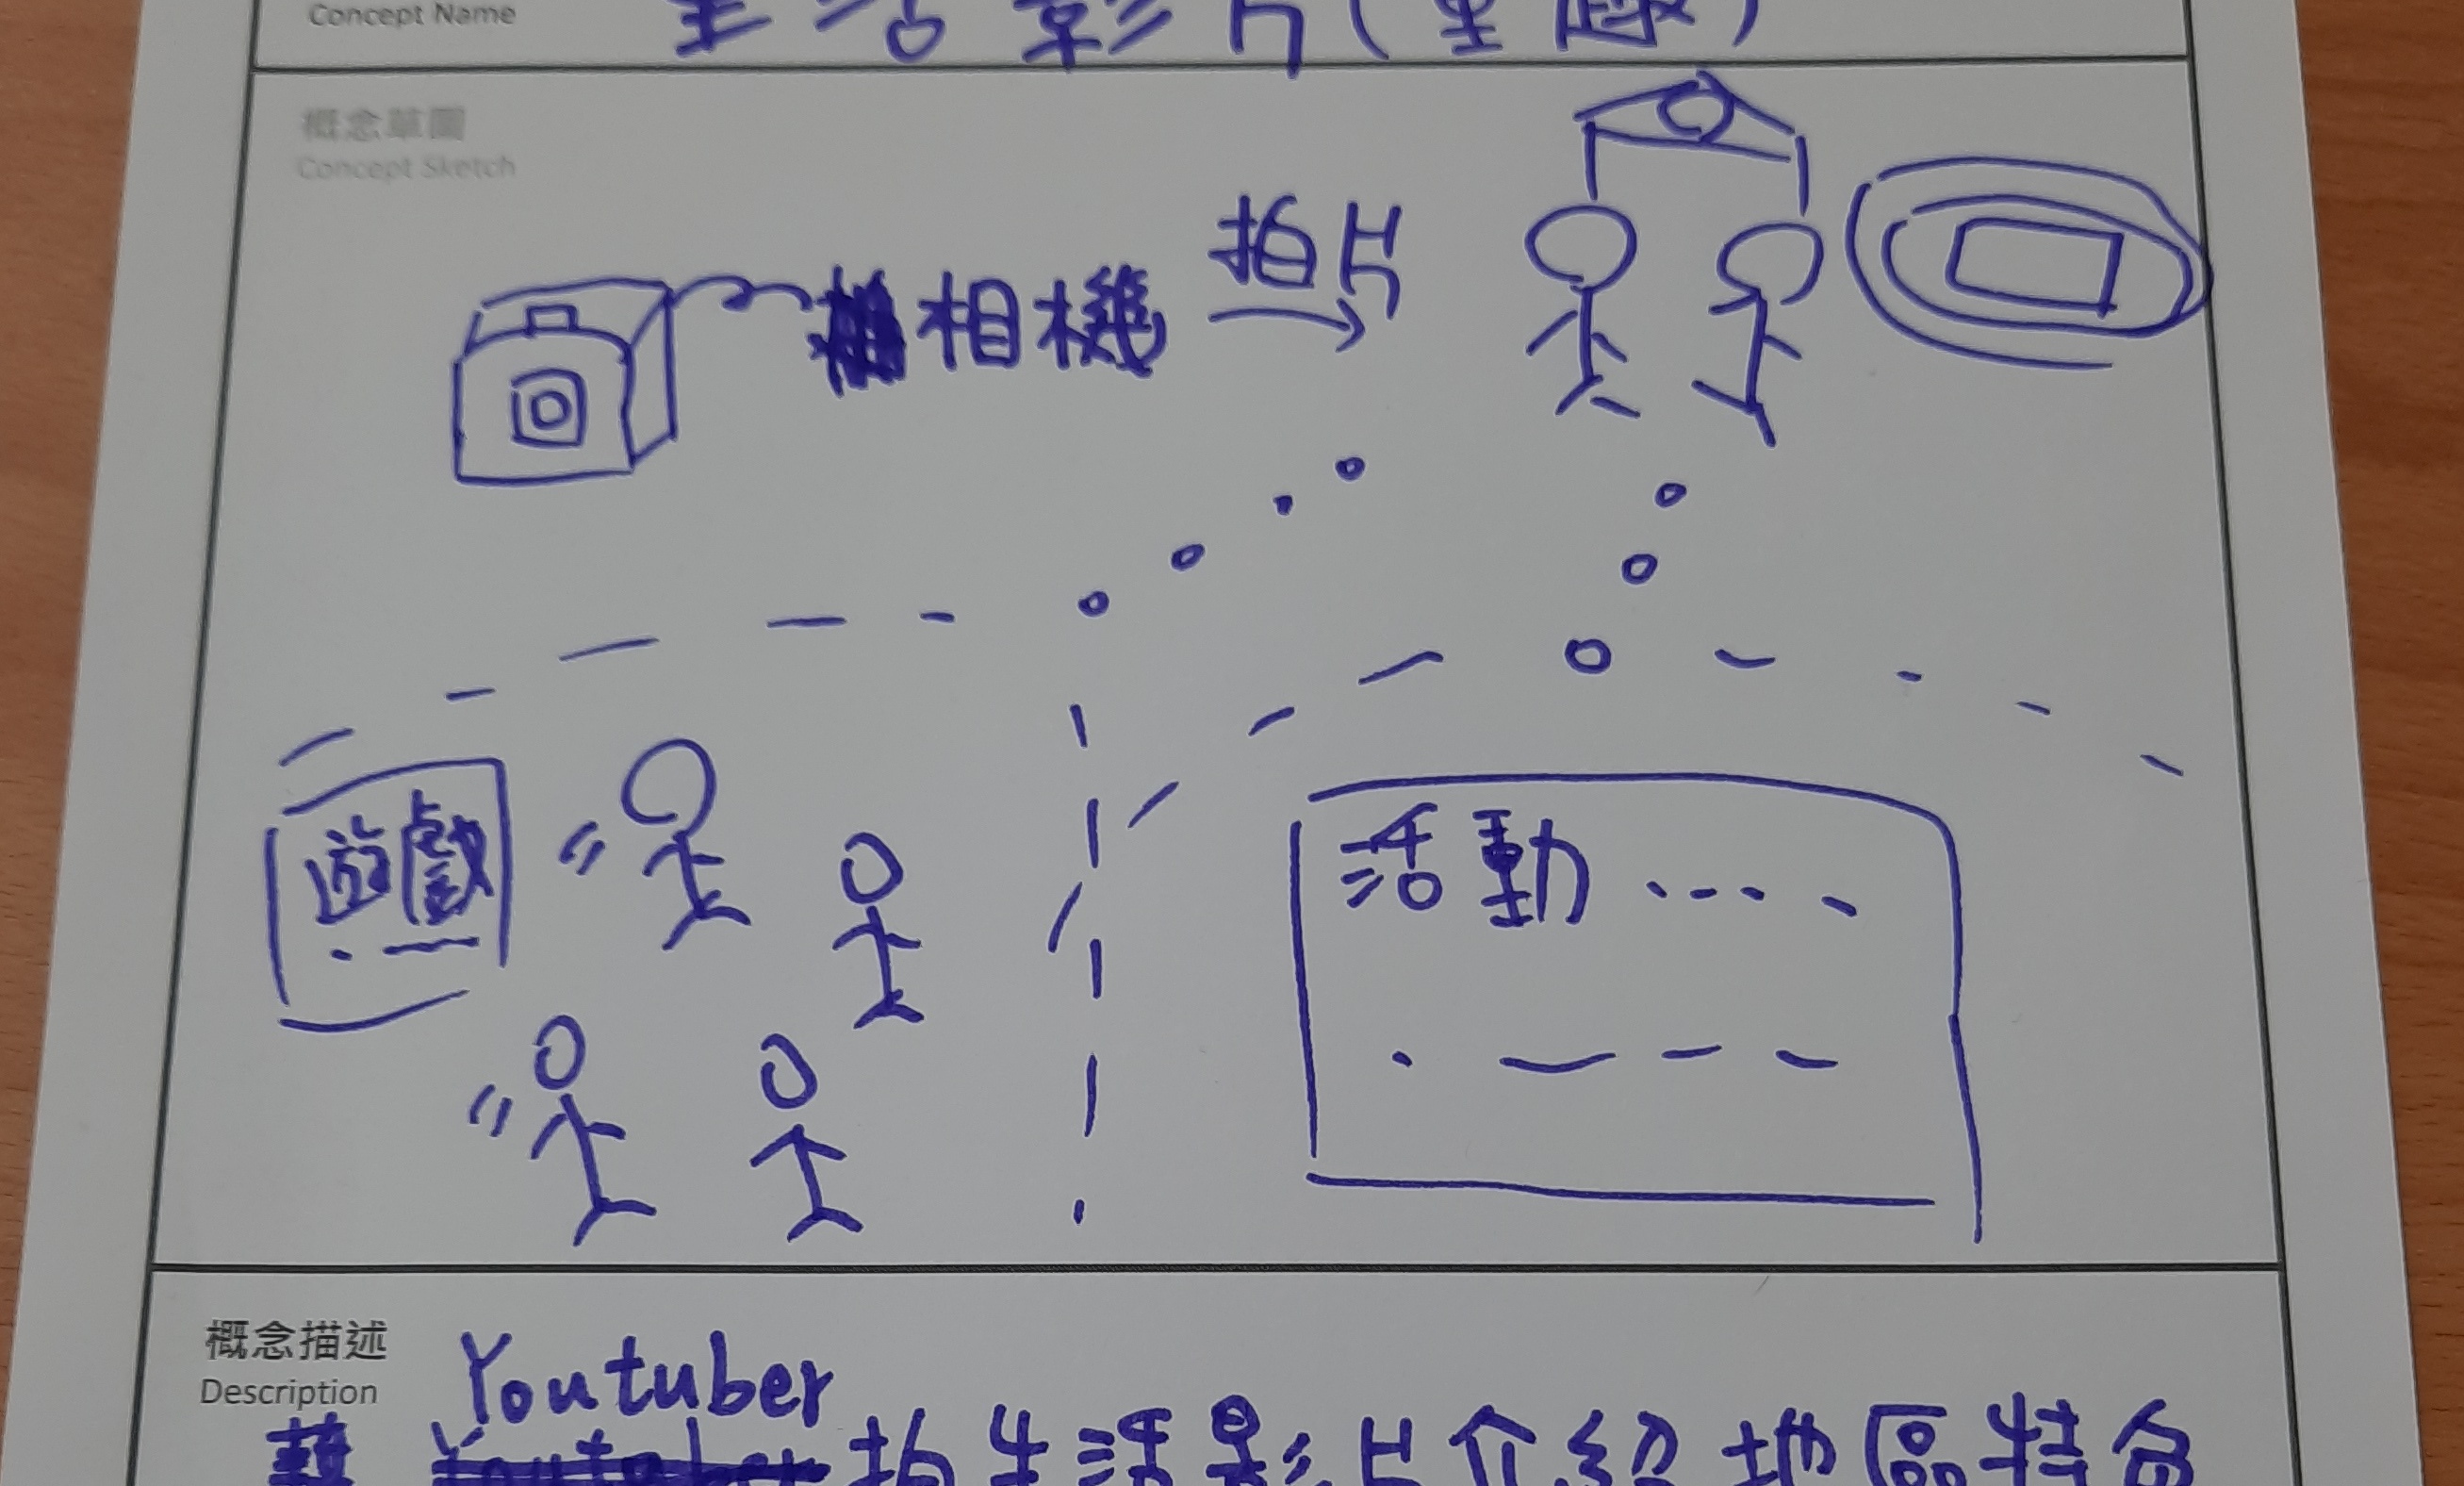 Concept Name
生活影片(里
概念草圖
Concept Sketch
相機
拍片
遊戲
活動
概念描述
Description
Youtuber
拍生活影片介紹地區特色